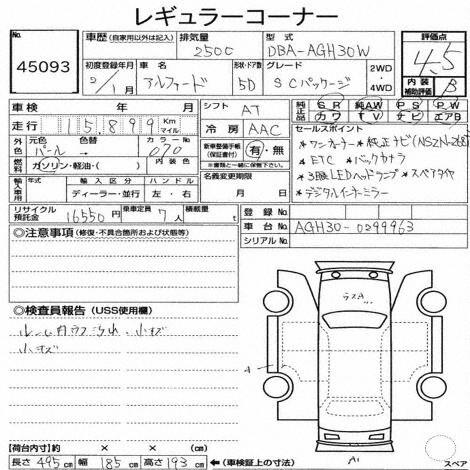 レギュラーコーナー
No.
45093
車歴（自家用以外は記入） 排気量 型式
2500 DBA-AGH30W
評価点
4.5
初度登録年月 車名 形状・ドア数 グレード
2/1月 アルファード 5D SCパッケージ
2WD
4WD
内装補助評価 B
車検 年 月
走行 115,899 Km マイル
シフト AT
冷房 AAC
純正品 SR 純AW PS PW
カワ TV ナビ エアB
外装 元色 色替 カラーNo. 内装色
パール 070
燃料 ガソリン・軽油・( )
新車整備手帳(保証書付) 有・無
※書類と一緒に保管
名義変更期限
月 日
セールスポイント
*ワンオーナー *純正ナビ(NSZN-Z68T)
*ETC *バックカメラ
*3眼LEDヘッドランプ *スペアタイヤ
*デジタルインナーミラー
年モデル 輸入区分 ハンドル
輸入車 年 ディーラー・並行 左・右
リサイクル預託金 16550円 乗車定員 7人 積載量 t
登録No.
車台No. AGH30-0299963
シリアルNo.
◎注意事項（修復・不具合箇所および状態等）
◎検査員報告（USS使用欄）
ルーム内ウス汚れ、小キズ
小キズ
ラスA
A
A1
【荷台内寸】約 × × (cm)
長さ 495cm 幅 185cm 高さ 193cm ←（車検証上の寸法）
スペア